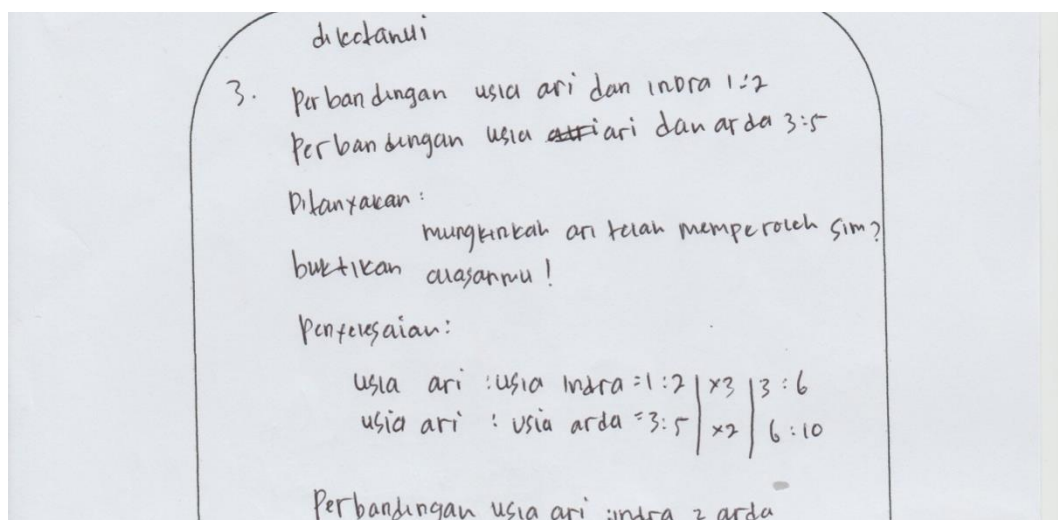 diketahui
3. Perbandingan usia ari dan indra 1:2
Perbandingan usia ari dan arda 3:5
Ditanyakan:
mungkinkah ari telah memperoleh sim?
buktikan alasanmu!
Penyelesaian:
usia ari : usia indra = 1:2 | ×3 | 3:6
usia ari : usia arda = 3:5 | ×2 | 6:10
Perbandingan usia ari : indra : arda